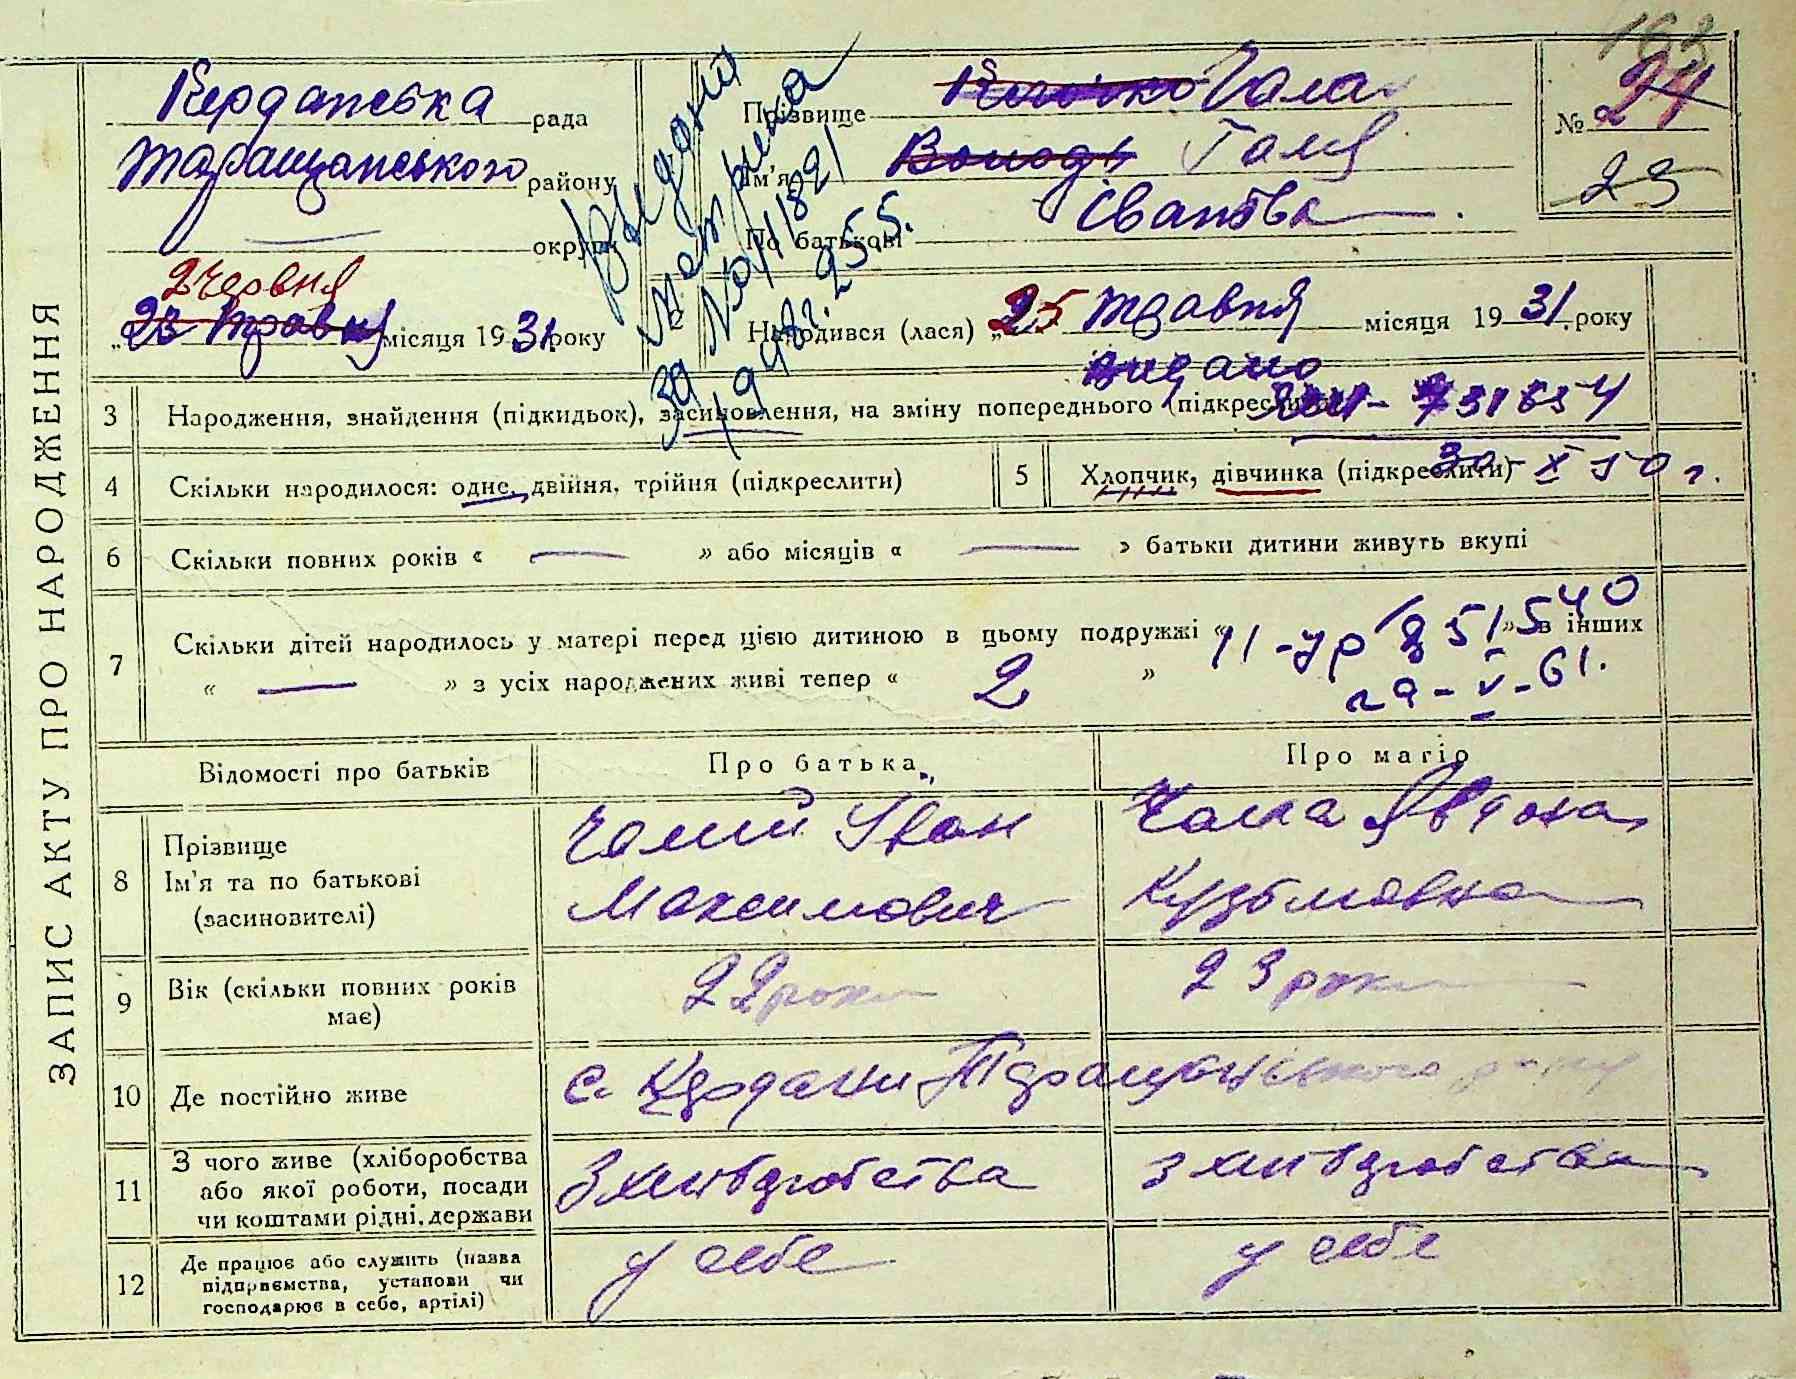 168
Кердапська рада
Таращанського району
округи
2 Червня
„23 Травня місяця 1931 року
Видана
метрика
за № 118821
194
255.
Прізвище Гала
Ім'я Галя
По батькові Іванівна
№ 24
23
Народився (лася) „25 Травня місяця 1931. року
видано
731654
30 - X 50 г.
ЗАПИС АКТУ ПРО НАРОДЖЕННЯ
3 Народження, знайдення (підкидьок), засиновлення, на зміну попереднього (підкреслити)
4 Скільки народилося: одне, двійня, трійня (підкреслити)
5 Хлопчик, дівчинка (підкреслити)
6 Скільки повних років « — » або місяців « — » батьки дитини живуть вкупі
7 Скільки дітей народилось у матері перед цією дитиною в цьому подружжі « » в інших
« — » з усіх народжених живі тепер « 2 »
11-ур 851540
29-V-61.
Відомості про батьків
Про батька
Про матір
8 Прізвище
Ім'я та по батькові
(засиновителі)
Іван
Максимович
Явдоха
Кузьмовна
9 Вік (скільки повних років
має)
22 роки
23 роки
10 Де постійно живе
с. Кердани Таращанського р-ну
11 З чого живе (хліборобства
або якої роботи, посади
чи коштами рідні, держави
З хліборобства
З хліборобства
12 Де працює або служить (назва
підприємства, установи чи
господарює в себе, артілі)
у себе
у себе